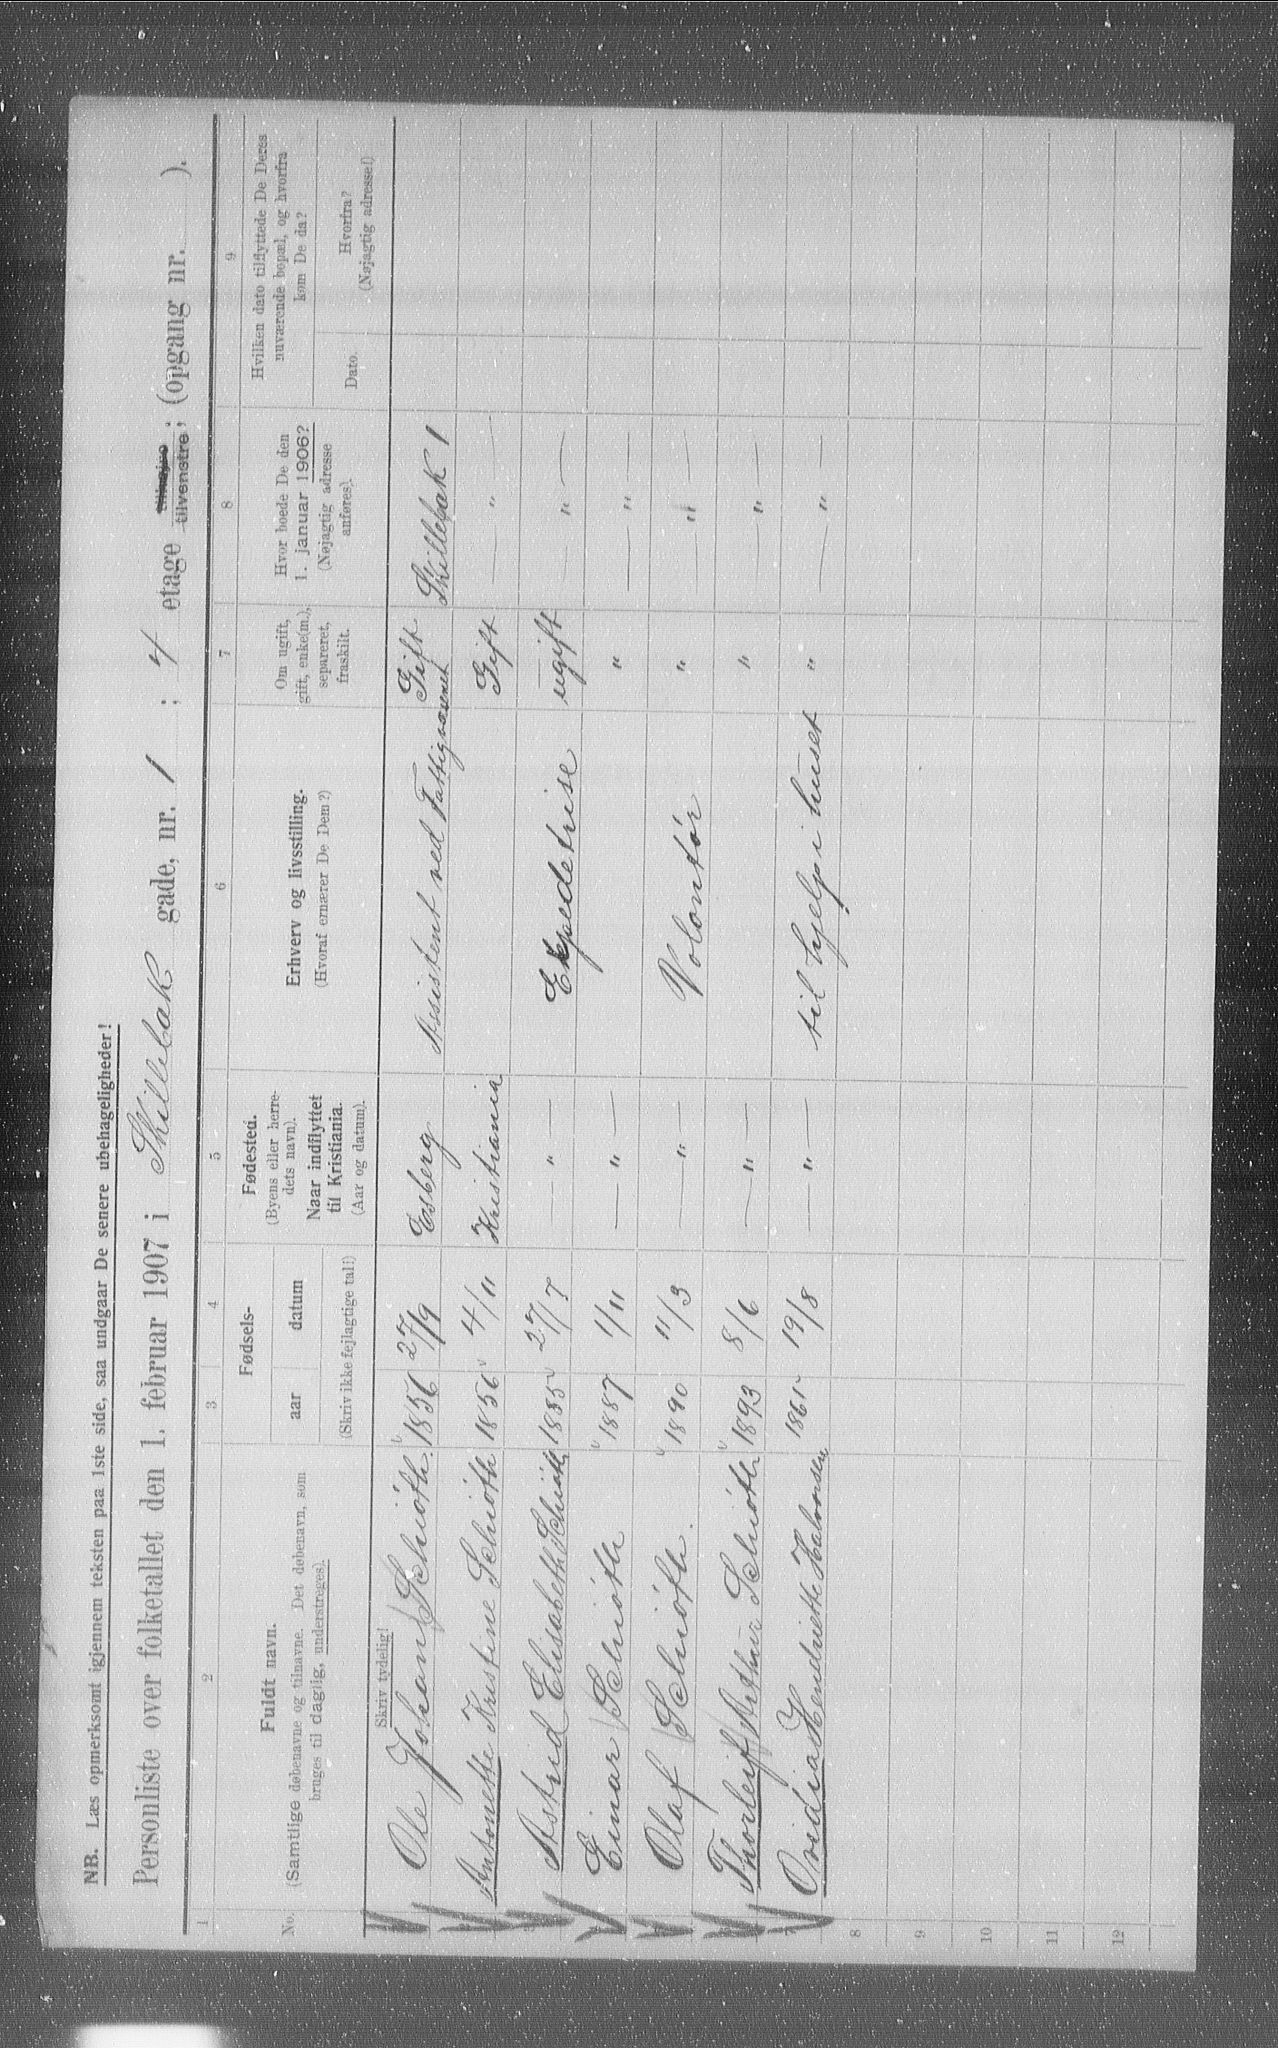 NB. Læs opmerksomt igjennem teksten paa 1ste side, saa undgaar De senere ubehageligheder!
Personliste over folketallet den 1. februar 1907 i Skillebæk gade, nr. 1 ; 4 etage tilvenstre; (opgang nr. ).
1 2 3 4 5 6 7 8 9
No.
Fuldt navn.
(Samtlige døbenavne og tilnavne. Det døbenavn, som
bruges til daglig, understreges).
Fødsels-
aar datum
(Skriv ikke fejlagtige tal!)
Fødested.
(Byens eller herre-
dets navn).
Naar indflyttet
til Kristiania.
(Aar og datum).
Erhverv og livsstilling.
(Hvoraf ernærer De Dem?)
Om ugift,
gift, enke(m.),
separeret,
fraskilt.
Hvor boede De den
1. januar 1906?
(Nøjagtig adresse
anføres).
Hvilken dato tilflyttede De Deres
nuværende bopæl, og hvorfra
kom De da?
Dato.
Hvorfra?
(Nøjagtig adresse!)
Skriv tydelig!
Ole Johan Schiöth. 1856 27/9 Esberg Assistent ved Fattigvæsenet Gift Skillebæk 1
Antonette Kristine Schiöth 1856 4/11 Kristiania Gift — " —
Astrid Elisabeth Schiöth 1885 27/7 — " — Expeditrise ugift — " —
Einar Schiöth 1887 1/11 — " — " — "
Olaf Schiöth. 1890 11/3 — " — Volontör " — " —
Thorleif Arthur Schiöth 1893 8/6 — " — " — " —
Ovidia Hendriette Halvorsen 1861 19/8 " til hjelp i huset " — " —
8
9
10
11
12